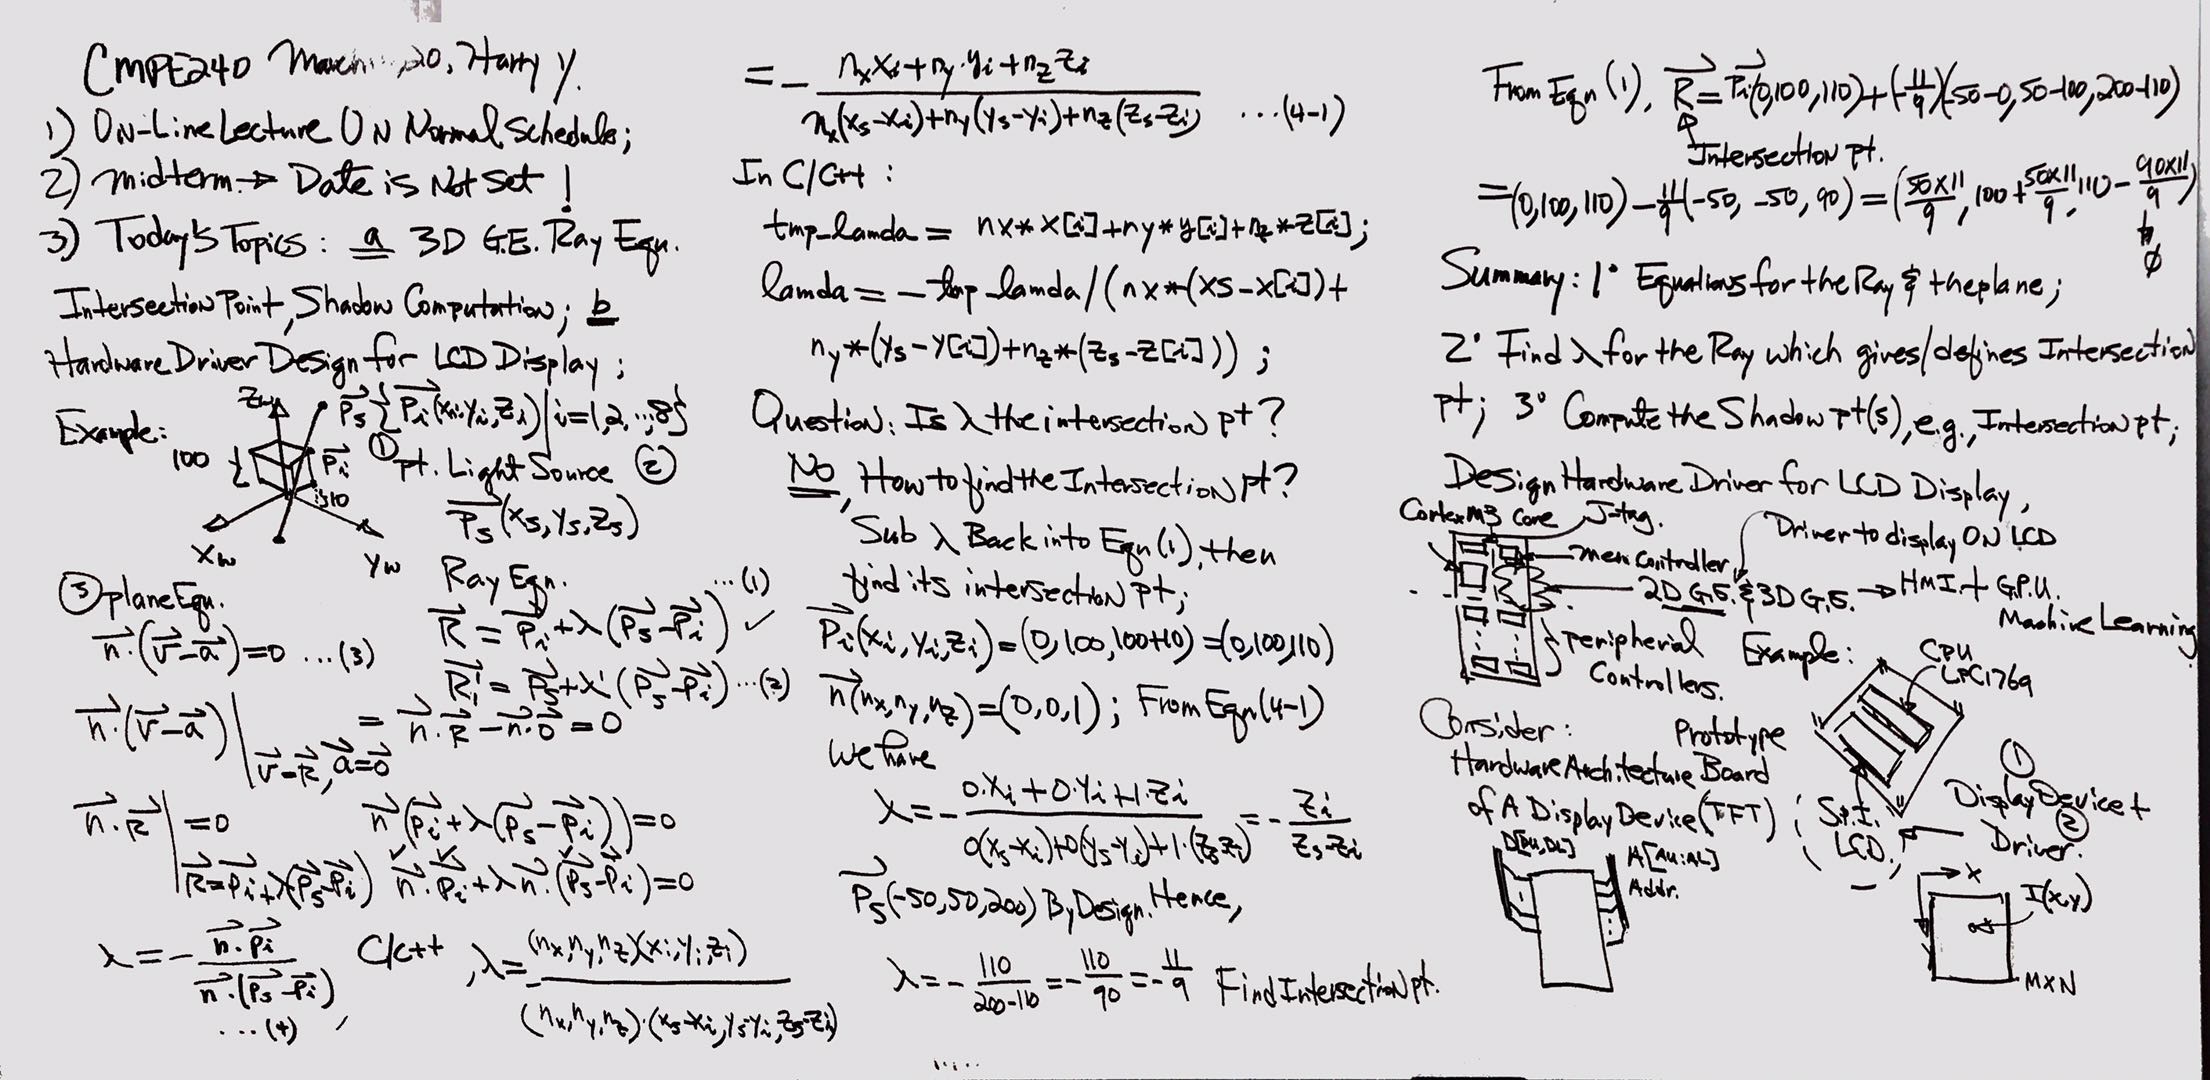 CMPE240 March 20, Harry Y.
1) ON-Line Lecture ON Normal Schedule;
2) midterm → Date is Not Set!
3) Today's Topics: a 3D G.E. Ray Eqn.
Intersection Point, Shadow Computation; b
Hardware Driver Design for LCD Display;
Example:
Zw
Ps {Pi(xi,yi,zi)|i=1,2,..,8}
①
100
Pi
10
pt. Light Source ②
Ps(xs,ys,zs)
Xw
Yw
③ plane Eqn.
n·(v-a)=0 ...(3)
Ray Eqn.
...(1)
R=Pi+λ(Ps-Pi) ✓
Ri'=Ps+λ'(Ps-Pi)...(2)
n·(v-a)|v=R, a=0 = n·R-n·0=0
n·R|R=Pi+λ(Ps-Pi) =0
n(Pi+λ(Ps-Pi))=0
n·Pi+λn·(Ps-Pi)=0
λ=- n·Pi / n·(Ps-Pi)
...(4)
C/C++, λ=- (nx,ny,nz)(xi,yi,zi) / (nx,ny,nz)·(xs-xi,ys-yi,zs-zi)
=- nxxi+ny·yi+nzzi / nx(xs-xi)+ny(ys-yi)+nz(zs-zi) ...(4-1)
In C/C++:
tmp_lamda= nx*x[i]+ny*y[i]+nz*z[i];
lamda=-tmp_lamda/(nx*(xs-x[i])+
ny*(ys-y[i])+nz*(zs-z[i]));
Question: Is λ the intersection pt?
No, How to find the Intersection pt?
Sub λ Back into Eqn(1), then
find its intersection pt;
Pi(xi,yi,zi)=(0,100,100+10)=(0,100,110)
n(nx,ny,nz)=(0,0,1); From Eqn(4-1)
we have
λ=- 0·xi+0·yi+1·zi / 0(xs-xi)+0(ys-yi)+1·(zs-zi) =- zi / zs-zi
Ps(-50,50,200) By Design. Hence,
λ=- 110/200-110 =- 110/90 =- 11/9 Find Intersection pt.
From Eqn(1), R=Pi(0,100,110)+(-11/9)(-50-0,50-100,200-110)
Intersection pt.
=(0,100,110)-11/9(-50,-50,90)=(50x11/9,100+50x11/9,110-90x11/9)
0
Summary: 1° Equations for the Ray & the plane;
2° Find λ for the Ray which gives/defines Intersection
pt; 3° Compute the Shadow pt(s), e.g., Intersection pt;
Design Hardware Driver for LCD Display,
Cortex M3 Core
J-tag.
Driver to display ON LCD
mem controller
2D G.E. & 3D G.E. → HMI. + G.P.U.
Machine Learning
peripherial
Controllers.
Example:
CPU
LPC1769
Consider:
Prototype
Hardware Architecture Board
of A Display Device (TFT)
S.P.I.
LCD.
①
Display Device +
②
Driver.
D[DU,DL]
A[AU:AL]
Addr.
X
I(x,y)
MXN